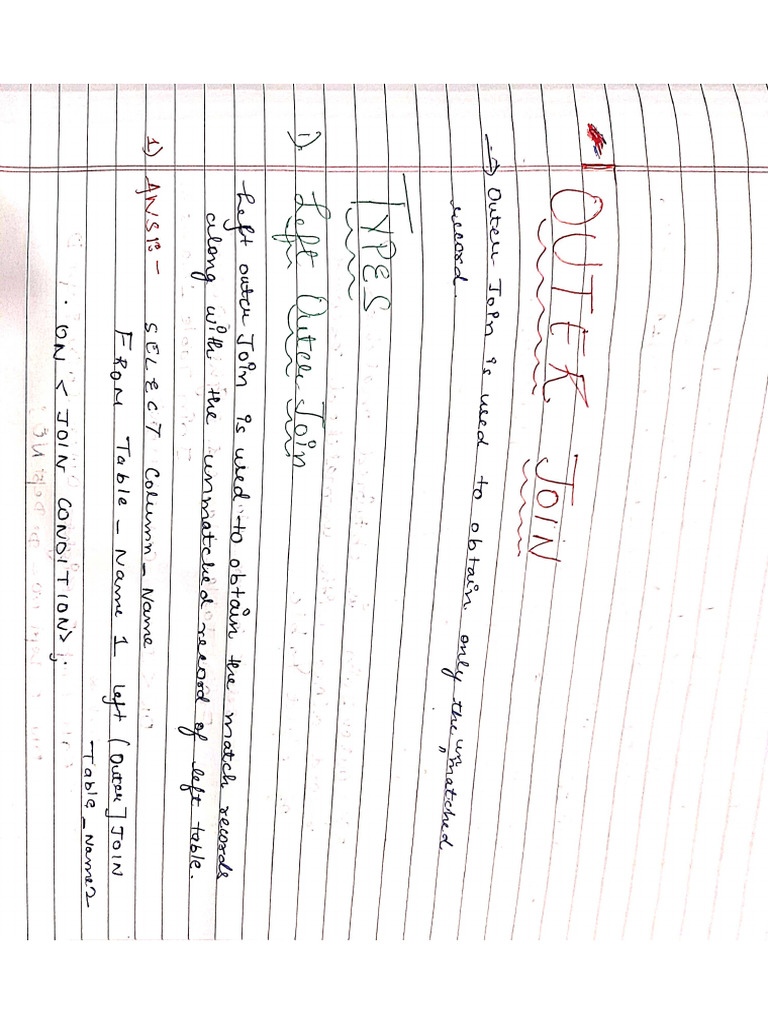 OUTER JOIN
→ Outer Join is used to obtain only the unmatched
record.
TYPES
1). Left Outer Join
Left outer Join is used to obtain the match records
along with the unmatched record of left table.
1) ANSI:- SELECT Column_Name
FROM Table_Name 1 left [Outer] JOIN
Table_Name2
ON < JOIN CONDITION>;